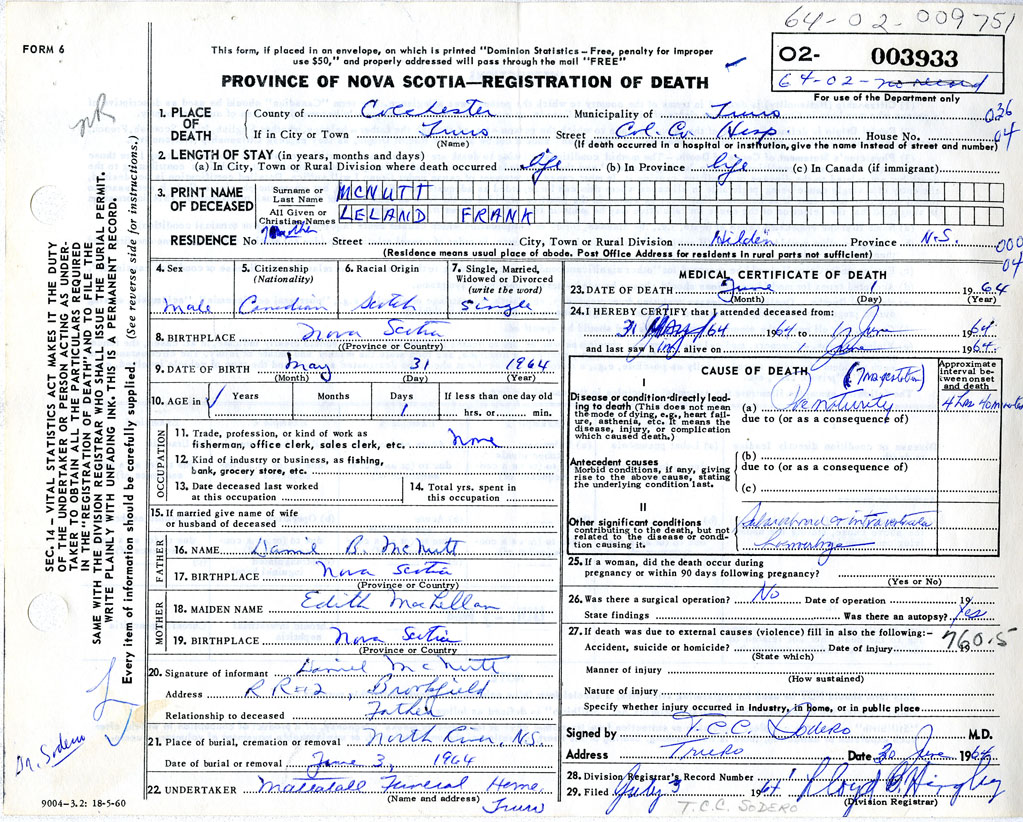 64-02-009751
FORM 6
This form, if placed in an envelope, on which is printed "Dominion Statistics—Free, penalty for improper
use $50," and properly addressed will pass through the mail "FREE"
02- 003933
64-02-no record
For use of the Department only
PROVINCE OF NOVA SCOTIA—REGISTRATION OF DEATH
1. PLACE OF DEATH
County of Colchester Municipality of Truro 036
If in City or Town Truro Street Col. Co. Hosp. House No. 04
(Name) (If death occurred in a hospital or institution, give the name instead of street and number)
2. LENGTH OF STAY (in years, months and days)
(a) In City, Town or Rural Division where death occurred life (b) In Province life (c) In Canada (if immigrant)
3. PRINT NAME OF DECEASED
Surname or Last Name MCNUTT
All Given or Christian Names LELAND FRANK
RESIDENCE No. Street City, Town or Rural Division Hilden Province N.S. 000
(Residence means usual place of abode. Post Office Address for residents in rural parts not sufficient) 04
4. Sex Male
5. Citizenship (Nationality) Canadian
6. Racial Origin Scotch
7. Single, Married, Widowed or Divorced (write the word) Single
8. BIRTHPLACE Nova Scotia
(Province or Country)
9. DATE OF BIRTH May 31 1964
(Month) (Day) (Year)
10. AGE in Years Months Days If less than one day old
1 hrs. or min.
OCCUPATION
11. Trade, profession, or kind of work as
fisherman, office clerk, sales clerk, etc. None
12. Kind of industry or business, as fishing,
bank, grocery store, etc.
13. Date deceased last worked at this occupation
14. Total yrs. spent in this occupation
15. If married give name of wife
or husband of deceased
FATHER
16. NAME Daniel B. McNutt
17. BIRTHPLACE Nova Scotia
(Province or Country)
MOTHER
18. MAIDEN NAME Edith MacLellan
19. BIRTHPLACE Nova Scotia
(Province or Country
20. Signature of informant Daniel McNutt
Address RR#2, Brookfield
Relationship to deceased Father
21. Place of burial, cremation or removal North River, N.S.
Date of burial or removal June 3, 1964
22. UNDERTAKER Mattatall Funeral Home
(Name and address) Truro
9004-3.2: 18-5-60
MEDICAL CERTIFICATE OF DEATH
23. DATE OF DEATH June 1 1964
(Month) (Day) (Year)
24. I HEREBY CERTIFY that I attended deceased from:
31 May/64 1964 to 1 June 1964
and last saw him alive on 1 June 1964
CAUSE OF DEATH
Approximate interval between onset and death
I
Disease or condition directly leading to death (This does not mean the mode of dying, e.g., heart failure, asthenia, etc. It means the disease, injury, or complication which caused death.)
(a) Prematurity 4 hrs 40 minutes
due to (or as a consequence of)
Antecedent causes
Morbid conditions, if any, giving rise to the above cause, stating the underlying condition last.
(b)
due to (or as a consequence of)
(c)
II
Other significant conditions
contributing to the death, but not related to the disease or condition causing it.
25. If a woman, did the death occur during
pregnancy or within 90 days following pregnancy?
(Yes or No)
26. Was there a surgical operation? No Date of operation 19
State findings Was there an autopsy? Yes
27. If death was due to external causes (violence) fill in also the following:— 760.5
Accident, suicide or homicide? Date of injury 19
(State which)
Manner of injury
(How sustained)
Nature of injury
Specify whether injury occurred in industry, in home, or in public place
Signed by T.C.C. Sodero M.D.
Address Truro Date 30 June 1964
28. Division Registrar's Record Number
29. Filed July 3 1964
(Division Registrar)
T.C.C. SODERO
SEC. 14 – VITAL STATISTICS ACT MAKES IT THE DUTY
OF THE UNDERTAKER OR PERSON ACTING AS UNDER-
TAKER TO OBTAIN ALL THE PARTICULARS REQUIRED
IN THE "REGISTRATION OF DEATH" AND TO FILE THE
SAME WITH THE DIVISION REGISTRAR WHO SHALL ISSUE THE BURIAL PERMIT.
WRITE PLAINLY WITH UNFADING INK. THIS IS A PERMANENT RECORD.
Every item of information should be carefully supplied. (See reverse side for instructions.)
nR
Dr. Sodero